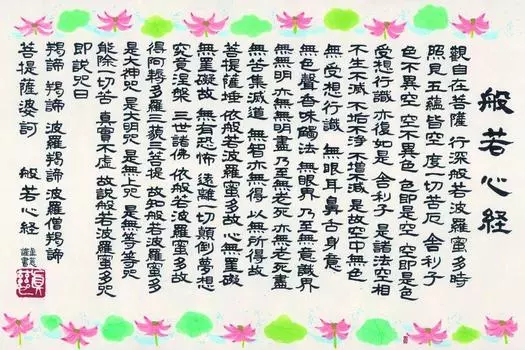 般若心経
觀自在菩薩 行深般若波羅蜜多時
照見五蘊皆空 度一切苦厄 舎利子
色不異空 空不異色 色即是空 空即是色
受想行識 亦復如是 舎利子 是諸法空相
不生不滅 不垢不浄 不增不減 是故空中無色
無受想行識 無眼耳鼻舌身意
無色聲香味觸法 無眼界 乃至無意識界
無無明 亦無無明盡 乃至無老死 亦無老死盡
無苦集滅道 無智亦無得 以無所得故
菩提薩埵 依般若波羅蜜多故 心無罣礙
無罣礙故 無有恐怖 遠離一切顛倒夢想
究竟涅槃 三世諸佛 依般若波羅蜜多故
得阿耨多羅三藐三菩提 故知般若波羅蜜多
是大神咒 是大明咒 是無上咒 是無等等咒
能除一切苦 真實不虛 故說般若波羅蜜多咒
即說咒曰
羯諦 羯諦 波羅羯諦 波羅僧羯諦
菩提薩婆訶 般若心経